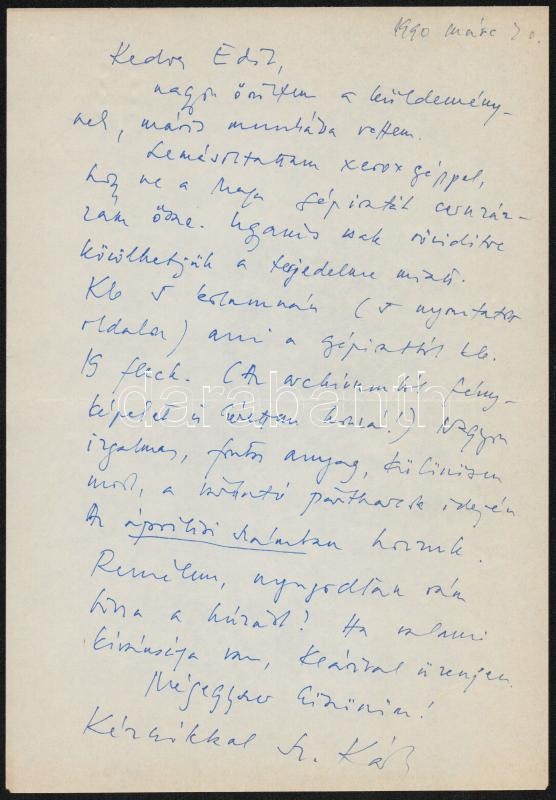 1990 márc
Kedves Edit,
nagyon örültem a küldemény-
nek, máris munkába vettem.
Lemásoltattam xerox géppel,
hogy ne a Maga gépiratát
össze. Ugyanis csak rövidítve
közölhetjük a terjedelme miatt.
Kb 5 kolumnán (5 nyomtatott
oldalon) ami a gépiratból kb.
19 flekk. (Az archívumból fény-
képeket is kértem hozzá!) Nagyon
izgalmas, fontos anyag, különösen
most, a pártharcok idején
Az áprilisi számban hozzuk.
Remélem, nyugodtan rám
bízza a húzást? Ha valami
kívánsága van, Klárival üzenjen.
Mégegyszer köszönöm!
Kézcsókkal
darabanth